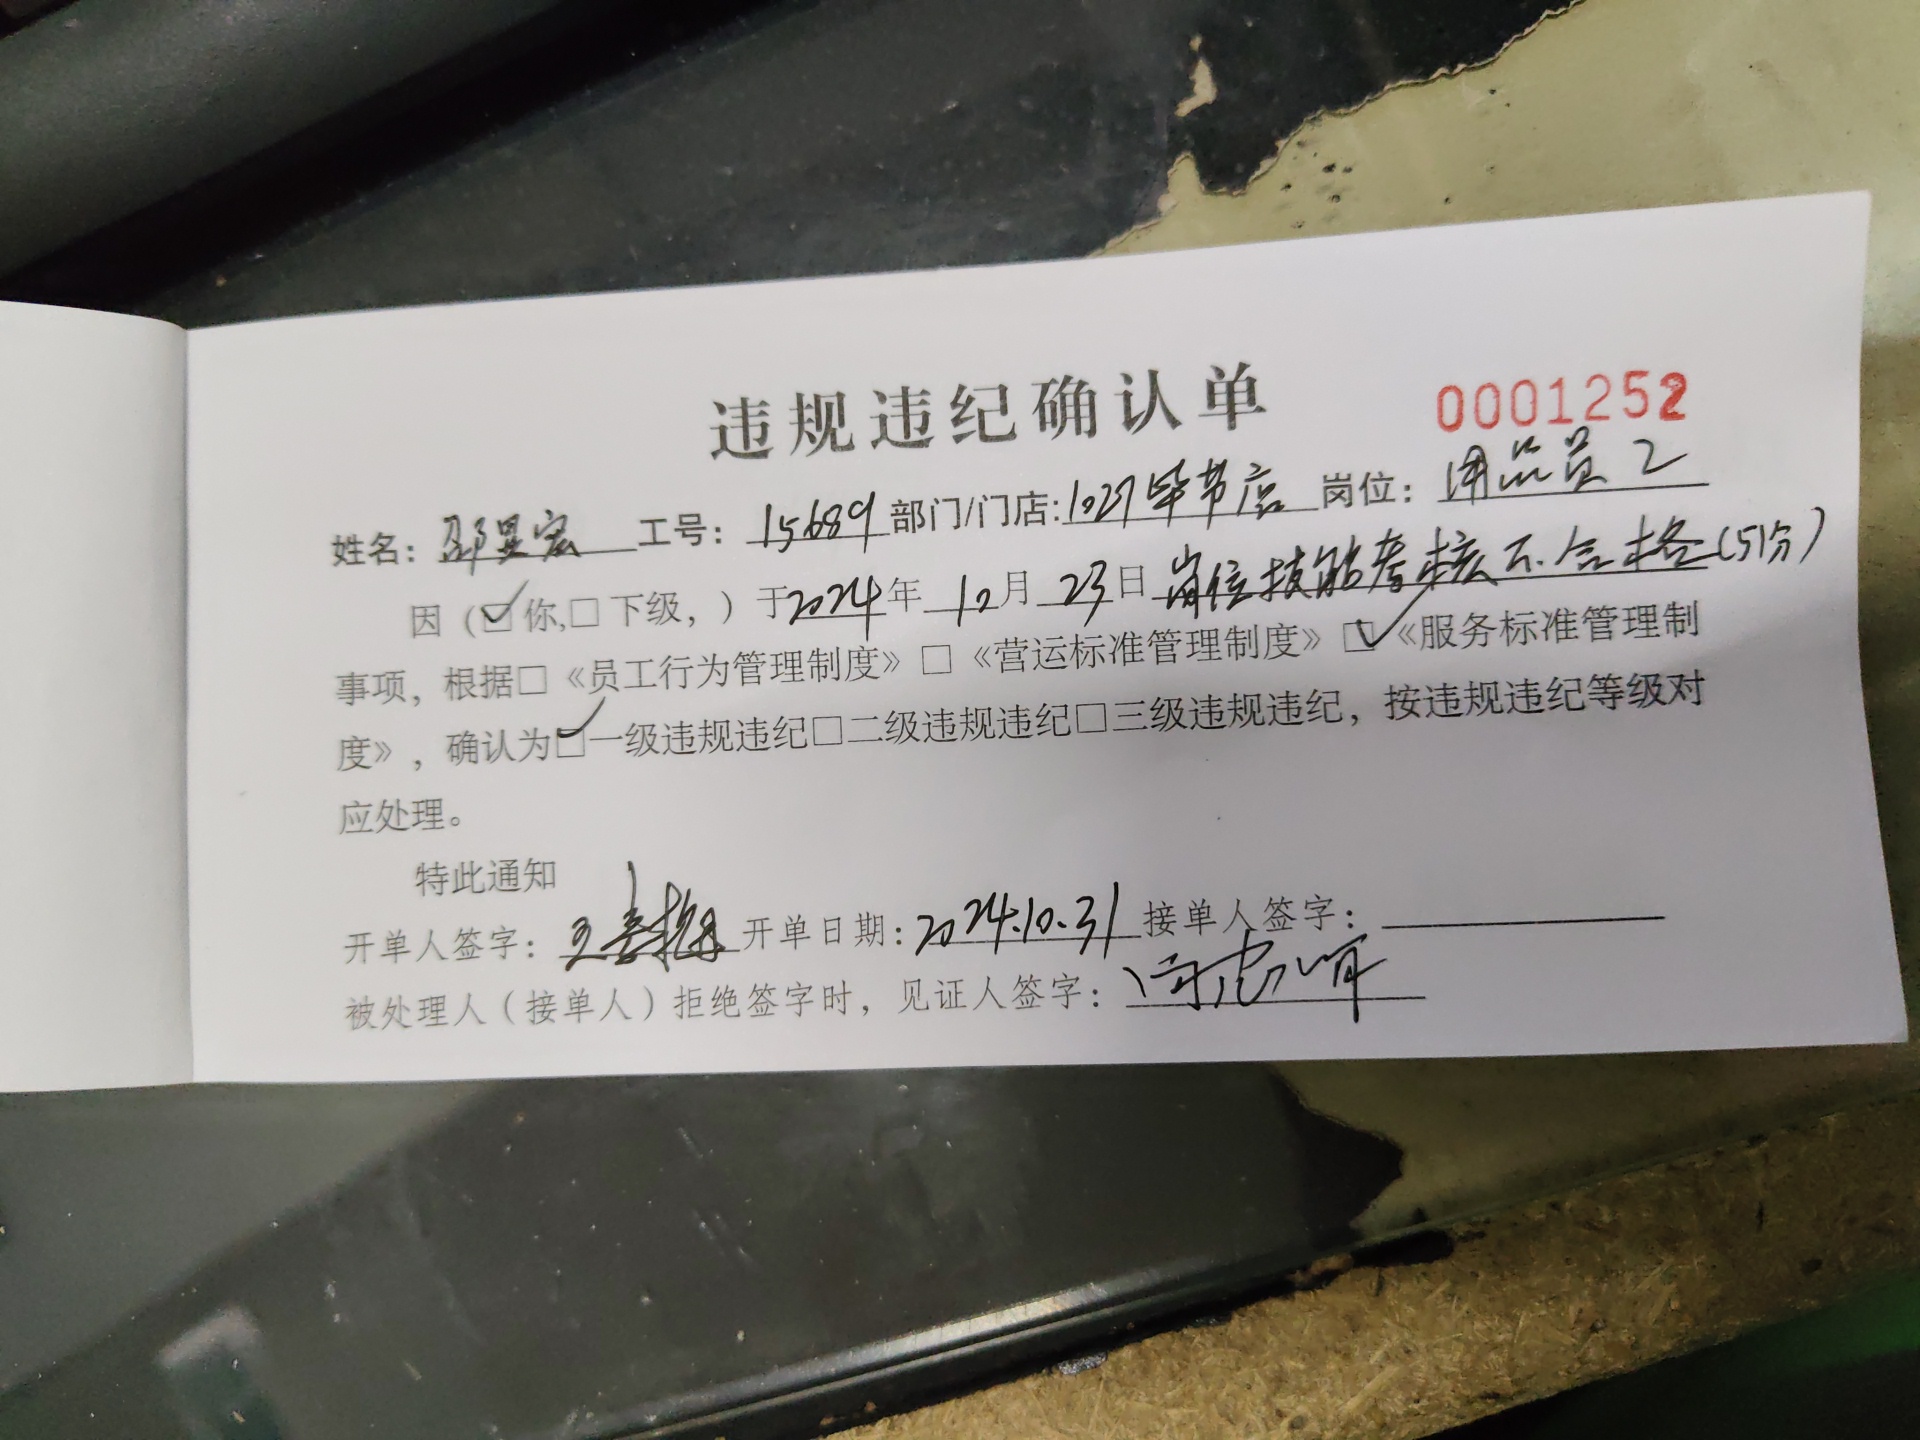 违规违纪确认单 0001252
姓名：邵显宏 工号：15689 部门/门店:1027毕节店 岗位：用品员2
因（☑你,□下级，）于2024年10月23日岗位技能考核不合格(51分)
事项，根据□《员工行为管理制度》□《营运标准管理制度》☑《服务标准管理制
度》，确认为☑一级违规违纪□二级违规违纪□三级违规违纪，按违规违纪等级对
应处理。
特此通知
开单人签字： 开单日期：2024.10.31 接单人签字：
被处理人（接单人）拒绝签字时，见证人签字：